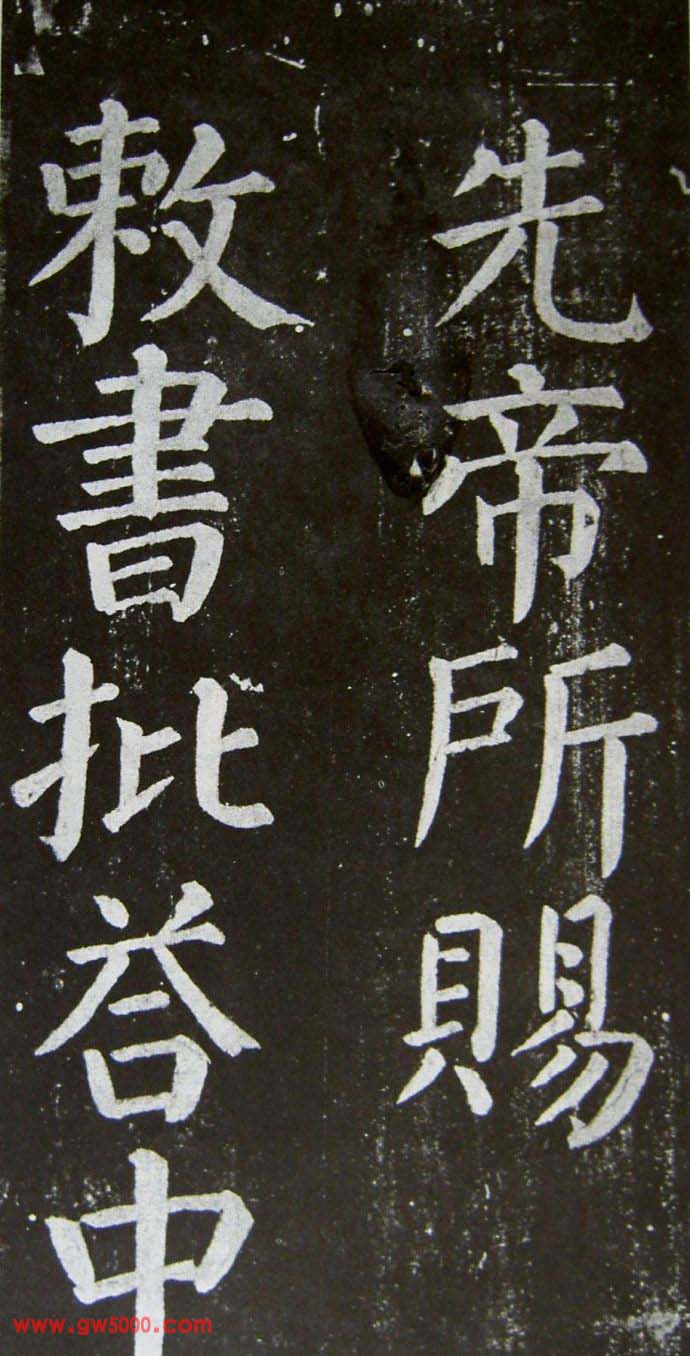 先帝所賜
敕書批荅中
www.gw5000.com